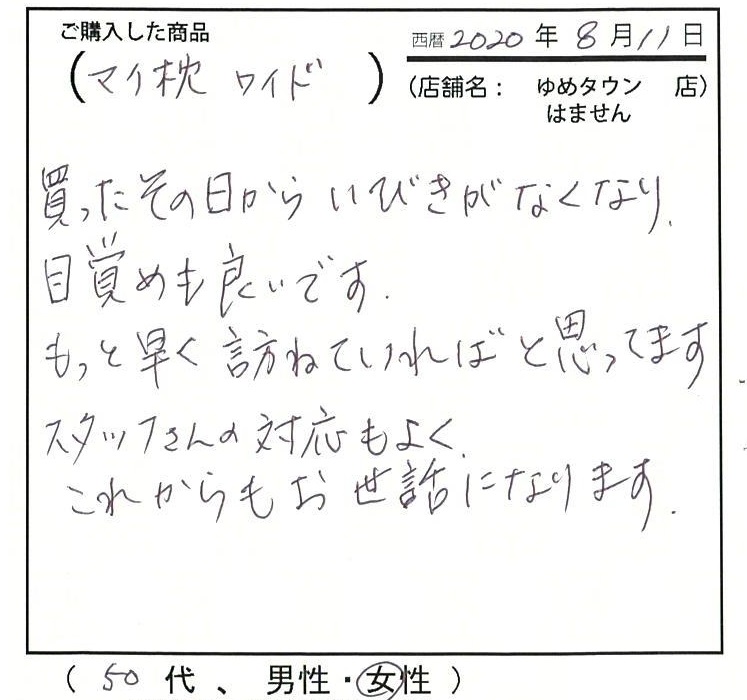 ご購入した商品
西暦2020年8月11日
(マイ枕 ワイド)
(店舗名: ゆめタウン 店)
はません
買ったその日からいびきがなくなり、
目覚めも良いです.
もっと早く訪ねていればと思ってます
スタッフさんの対応もよく、
これからもお世話になります.
(50代、男性・女性)